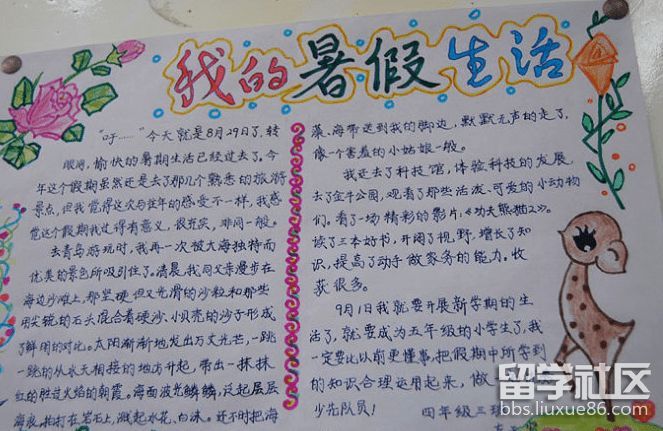 我的暑假生活
“吁……”今天就是8月29日了，转
眼间，愉快的暑期生活已经过去了。今
年这个假期虽然还是去了那几个熟悉的旅游
景点，但我觉得这次与往年的感受不一样，我感
觉这个假期我过得有意义，很充实，非同一般。
去青岛游玩时，我再一次被大海独特而
优美的景色所吸引住了。清晨，我同父亲漫步在
海边沙滩上，那坚硬但又光滑的沙粒和那些
用尖锐的石头混合着硬沙、小贝壳的沙子形成
了鲜明的对比。太阳渐渐地发出万丈光芒，一跳
一跳的从水天相接的地方升起，带出一抹抹
红的胜过火焰的朝霞。海面波光鳞鳞，泛起层层
海浪，拍打在岩石上，溅起水花、白沫。还不时把海
藻、海带送到我的脚边，默默无声的走了，
像一个害羞的小姑娘一般。
我还去了科技馆，体验科技的发展，
去了金牛公园，观看了那些活泼、可爱的小动物
们。看了一场精彩的影片，《功夫熊猫2》。
读了三本好书，开阔了视野，增长了知
识，提高了动手做家务的能力。收
获很多。
9月1日我就要开展新学期的生
活了，就要成为五年级的小学生了，我
一定要比以前更懂事，把假期中所学到
的知识合理运用起来，做
少先队员！
四年级三班
留学社区
bbs.liuxue86.com